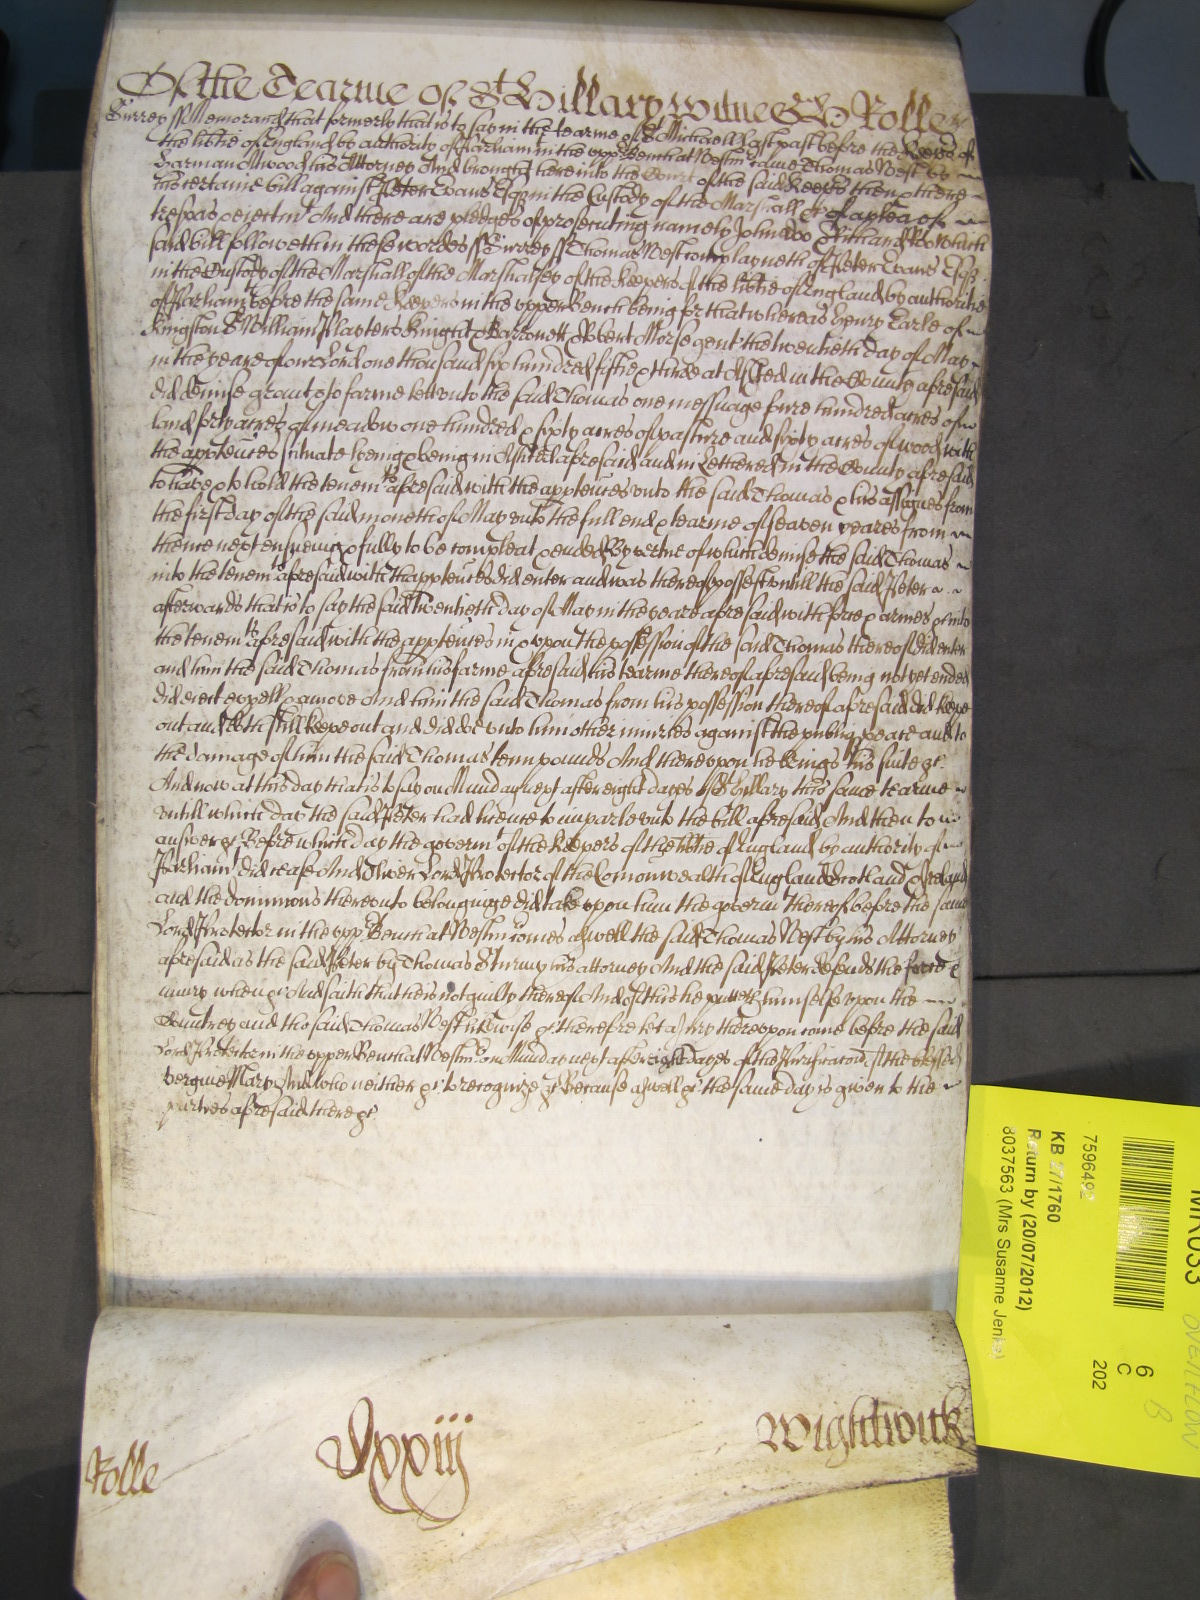 Of the Tearme of St Hillary witnes H Rolle
Surrey ss Memorand that formerly that is to say in the tearme of St Michaell last past before the Keepers of
the libtie of England by authority of Parliam in the upp Bench at Westm came Thomas West by
Harman Atwood his Attorney And brought here into the Court of the said Keepers then & there
his certaine bill against Peter Evans Esqr in the Custody of the Marshall &c of a plea of
trespas & eiectmt And there are pledges of prosecuting namely John Doo & Richard Roo Which
said bill followeth in these wordes ss Surrey ss Thomas West complayneth of Peter Evans Esqr
in the Custody of the Marshall of the Marshalsey of the Keepers of the libtie of England by authoritie
of Parliamt before the same Keepers in the upper Bench being for that whereas Henry Earle of
Kingston Sr William Masters Knight & Barronett & Robert Morse gent the twentieth day of May
in the yeare of our Lord one thousand six hundred fiftie & three at Ashted in the County aforesaid
did demise grant & to farme lett unto the said Thomas one messuage foure hundred acres of
land forty acres of meadow one hundred & sixty acres of pasture and sixty acres of wood with
the apptences situate lyeing & being in Ashted aforesaid and in Lethered in the County aforesaid
to have & to hold the tenemts aforesaid with the apptences unto the said Thomas & his assignes from
the first day of the said moneth of May unto the full end & tearme of seaven yeares from
thence next ensueing & fully to be compleat & ended By vertue of which demise the said Thomas
into the tenemts aforesaid with thapptences did enter and was thereof possest untill the said Peter
afterwards that is to say the said twentieth day of May in the yeare aforesaid with force & armes &c into
the tenemts aforesaid with the apptences in & upon the possession of the said Thomas thereof did enter
and him the said Thomas from his farme aforesaid his tearme thereof aforesaid being not yet ended
did eiect expell & amove And him the said Thomas from his possession thereof aforesaid did keepe
out and doth still keepe out and did doe unto him other iniuries against the publiq peace and to
the damage of him the said Thomas tenn pounds And thereupon he brings his suite &c
And now at this day that is to say on Munday next after eight dayes of St Hillary this same tearme
untill which day the said Peter had licence to imparle unto the bill aforesaid And then to
answer &c Before which day the governt of the Keepers of the libtie of England by authority of
Parliamt did cease And Oliver Lord Protector of the Comonwealth of England Scotland & Ireland
and the dominions thereunto belonginge did take upon him the governt thereof before the same
Lord Protector in the upp Bench at Westm comes aswell the said Thomas West by his Attorney
aforesaid as the said Peter by Thomas Sturmy his attorney And the said Peter defends the force &
iniury when &c And saith that he is not guilty thereof And of this he putteth himselfe upon the
Countrey and the said Thomas West likewise &c therefore let a Jury thereupon come before the said
Lord Protector in the upper Bench at Westm on Munday next after eight dayes of the Purificacon of the blessed
vergine Mary And who neither &c to recognize &c Because aswell &c the same day is given to the
parties aforesaid there &c
Rolle
Lxxiij
Wightwick
7596492
KB 27/1760
Return by (20/07/2012)
8037563 (Mrs Susanne Jenks)
6
C
202
MR033
OVERFLOW
B